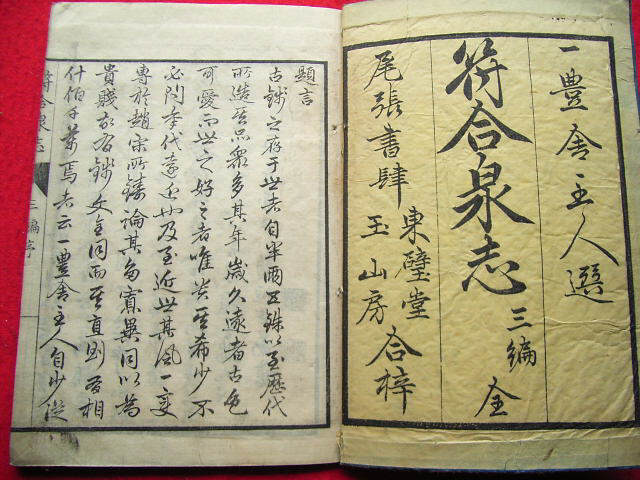 一豊舎主人選
符合泉志 三編 全
尾張書肆 東壁堂 玉山房 合梓
題言
古錢之存于世者自半兩五銖以至歷代
所造其品衆多其年歲久遠者古色
可愛而世之好之者唯貴其希少不
必問年代遠近也及至近世其風一變
專於趙宋所鋳論其多寡異同以為
貴賤故有錢文全同而其直則有相
什伯千萬焉者云一豊舎主人自少從
符合泉志 三編序